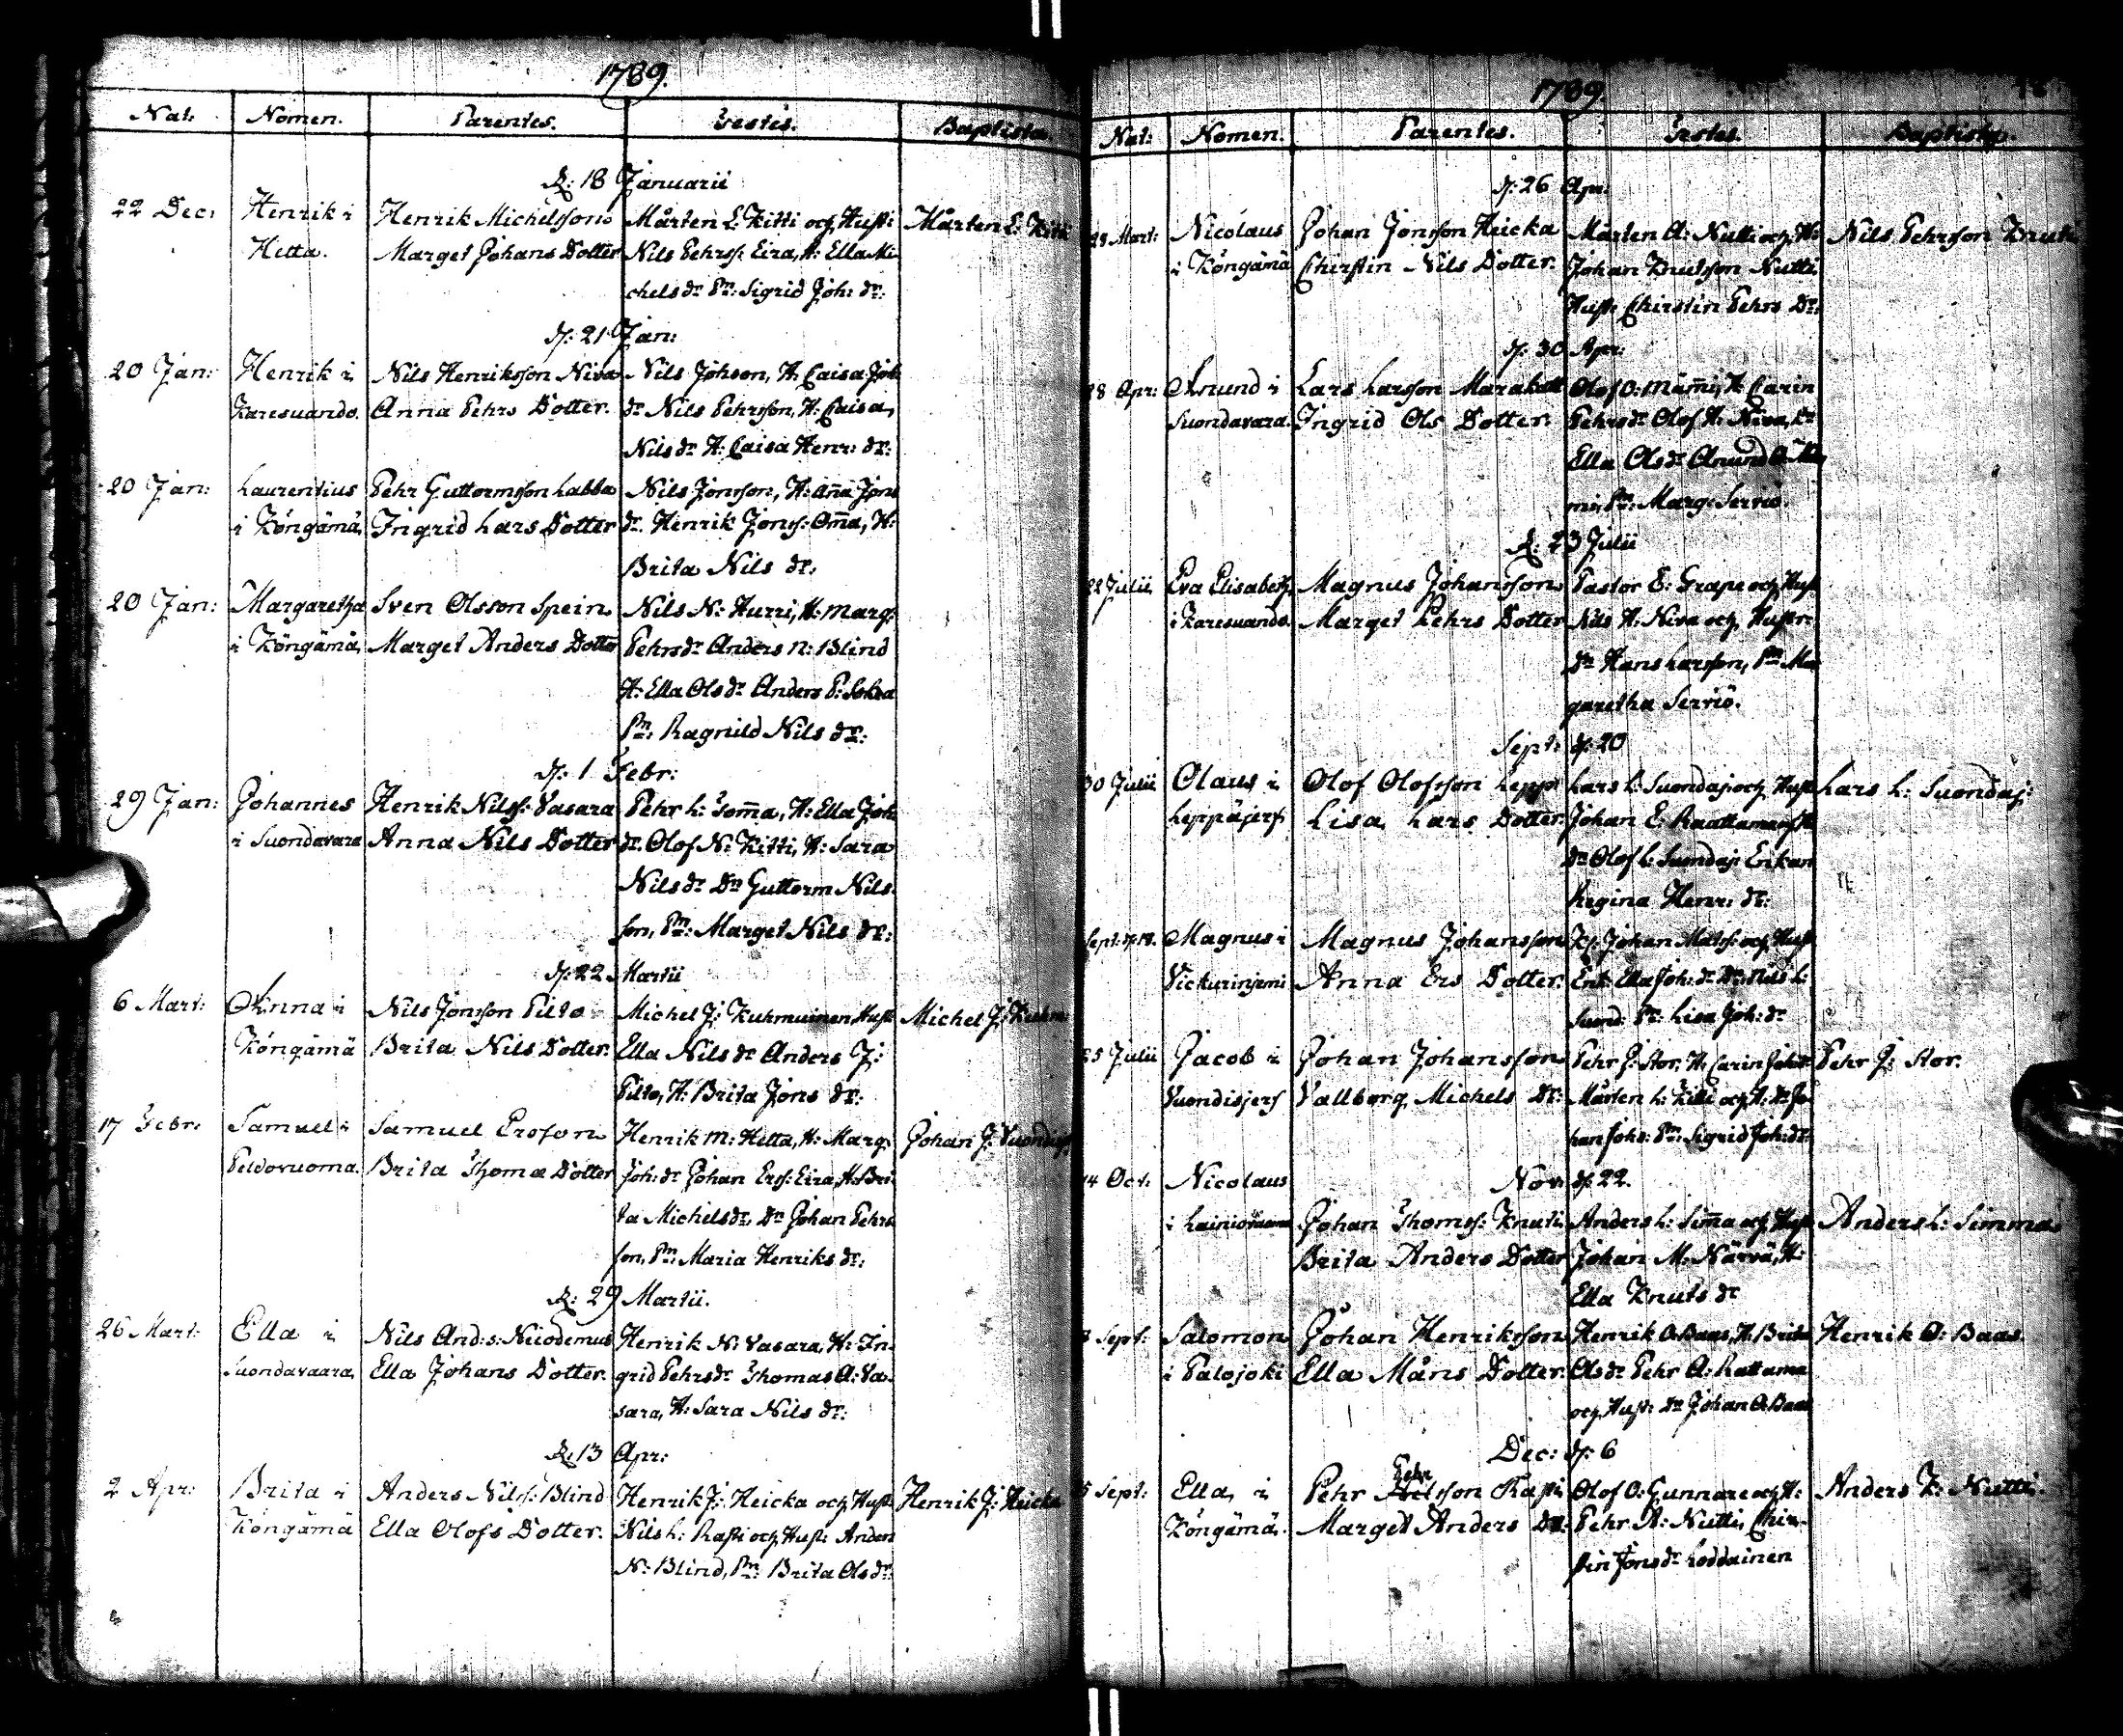 1789.
Nat: Nomen. Parentes. Testes. Baptista.
d: 18 Januarii
22 Dec: Henrik i Henrik Michelsson Mårten E: Kitti och Hust: Mårten E: Kitti
Hetta. Marget Johans Dotter Nils Pehrss: Eira, H: Ella Mi-
chels dr Pn: Sigrid Joh: dr:
d: 21 Jan:
20 Jan: Henrik i Nils Henriksson Niva Nils Johson, H: Caisa Joh
Karesuando. Anna Pehrs Dotter. dr Nils Pehrsson, H: Caisa,
Nils dr H: Caisa Henr: dr:
20 Jan: Laurentius Pehr Guttormsson Labba Nils Jonsson, H: Aña Jons
i Köngämä, Ingrid Lars Dotter dr. Henrik Jonss: Om̃a, H:
Brita Nils dr.
20 Jan: Margaretha Sven Olsson Spein Nils N: Hurri, H: Marg:
i Köngämä, Marget Anders Dotter Pehrs dr Anders N: Blind
H: Ella Ols dr Anders P:
Pn: Ragnild Nils dr:
d: 1 Febr:
29 Jan: Johannes Henrik Nilss: Vasara Pehr L: Tom̃a, H: Ella Joh
i Suondavara Anna Nils Dotter dr. Olof N: Kitti, H: Sara
Nils dr Dn Guttorm Nils-
son, Pn: Marget Nils dr:
d: 22 Martii
6 Mart: Anna i Nils Jonsson Pilto Michel J: Kuhmuinen, Hust: Michel J: Kuhm
Köngämä Brita Nils Dotter. Ella Nils dr Anders J:
Pilto, H: Brita Jons dr:
17 Febr: Samuel i Samuel Ersson Henrik M: Hetta, H: Marg: Johan J: Vuondisj
Peldovuoma. Brita Thomæ Dotter Joh: dr Johan Erss: Eira, H: Bri-
ta Michels dr, Dn Johan Pehrs-
son, Pn: Maria Henriks dr:
d: 29 Martii.
26 Mart: Ella i Nils And:s: Nicodemus Henrik N: Vasara, H: In-
Suondavaara, Ella Johans Dotter. grid Pehrs dr Thomas A: Va-
sara, H: Sara Nils dr:
d: 13 Apr:
2 Apr: Brita i Anders Nilss: Blind Henrik J: Heicka och Hust: Henrik J: Heicka
Köngämä Ella Olofs Dotter. Nils L: Rasti och Hust: Anders
N: Blind, Pn: Brita Ols dr:
1789.
Nat: Nomen. Parentes. Testes. Baptista.
d: 26 Apr:
28 Mart: Nicolaus Johan Jonsson Heicka Mårten A: Nutti och H: Nils Pehrsson Knuti
i Köngämä Chirstin Nils Dotter. Johan Knutsson Nutti
Hust: Chirstin Pehrs Dr:
d: 30 Apr:
28 Apr: Anund i Lars Larsson Marakatt Olof O: Mäm̃i, H: Carin
Suondavara. Ingrid Ols Dotter. Pehrs dr Olof H: Niva, Dr
Ella Ols dr Anund O: Mäm-
mi, Pn: Marg: Serviö.
d: 23 Julii
22 Julii Eva Elisabeth, Magnus Johansson Pastor E: Grape och Hust:
i Karesuando. Marget Pehrs Dotter Nils H: Niva och Hustr:
Dn Hans Larsson, Pn Mar-
garetha Serviö.
Sept: d: 20
30 Julii Olaus i Olof Olofsson Lepp Lars L: Suondaj: och Hust: Lars L: Suondaj:
Leppäjerf Lisa Lars Dotter. Johan E: Raattama och H:
Dn Olof L: Suondaj: Enkan
Regina Henr: dr:
Sept: d: 14. Magnus i Magnus Johansson Johan Matss: och Hust:
Vickurinjemi Anna Ers Dotter. Enk: Ella Joh: dr Dn: Nils L:
Suond: Pn: Lisa Joh: dr
25 Julii Jacob i Johan Johansson Pehr J: Stor, H: Carin Joh: dr Pehr J: Stor.
Vuondisjerf Vallborg Michels Dr: Mårten L: Kitti och H: Dn Jo-
han Johs: Pn: Sigrid Joh: dr:
14 Oct: Nicolaus Nov: d: 22.
i Lainiovuoma Johan Thomss: Knuti Anders L: Sim̃a och Hust: Anders L: Simma
Brita Anders Dotter Johan M: Närvä, H:
Ella Knuts dr
Sept: Salomon Johan Henriksson Henrik O: Baas, H: Brita Henrik O: Baas
i Palojoki Ella Måns Dotter. Ols dr Pehr A: Rattama
och Hust: Dn Johan O: Baas
Dec: d: 6
5 Sept: Ella i Pehr Pehrsson Rasti, Olof O: Gunnare och H: Anders K: Nutti.
Köngämä. Marget Anders Dr: Pehr A: Nutti, Chir-
stin Jons dr Loddainen